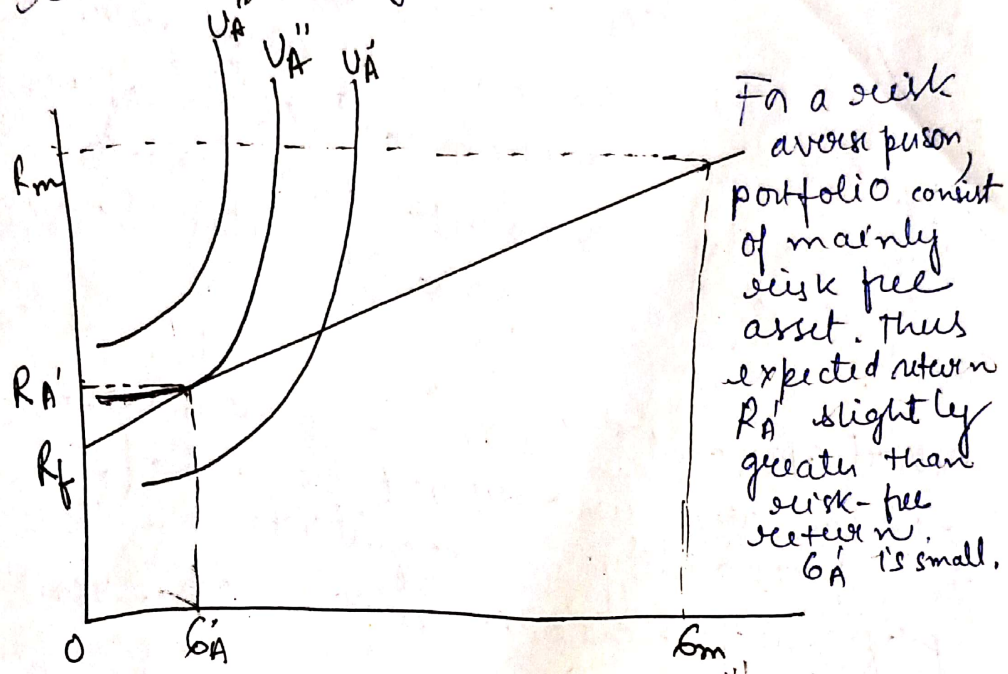 UA'''
UA''
UA'
Rm
RA'
Rf
0
6A'
6m
For a risk
averse person,
portfolio consist
of mainly
risk free
asset. Thus
expected return
RA' slightly
greater than
risk-free
return.
6A' is small.